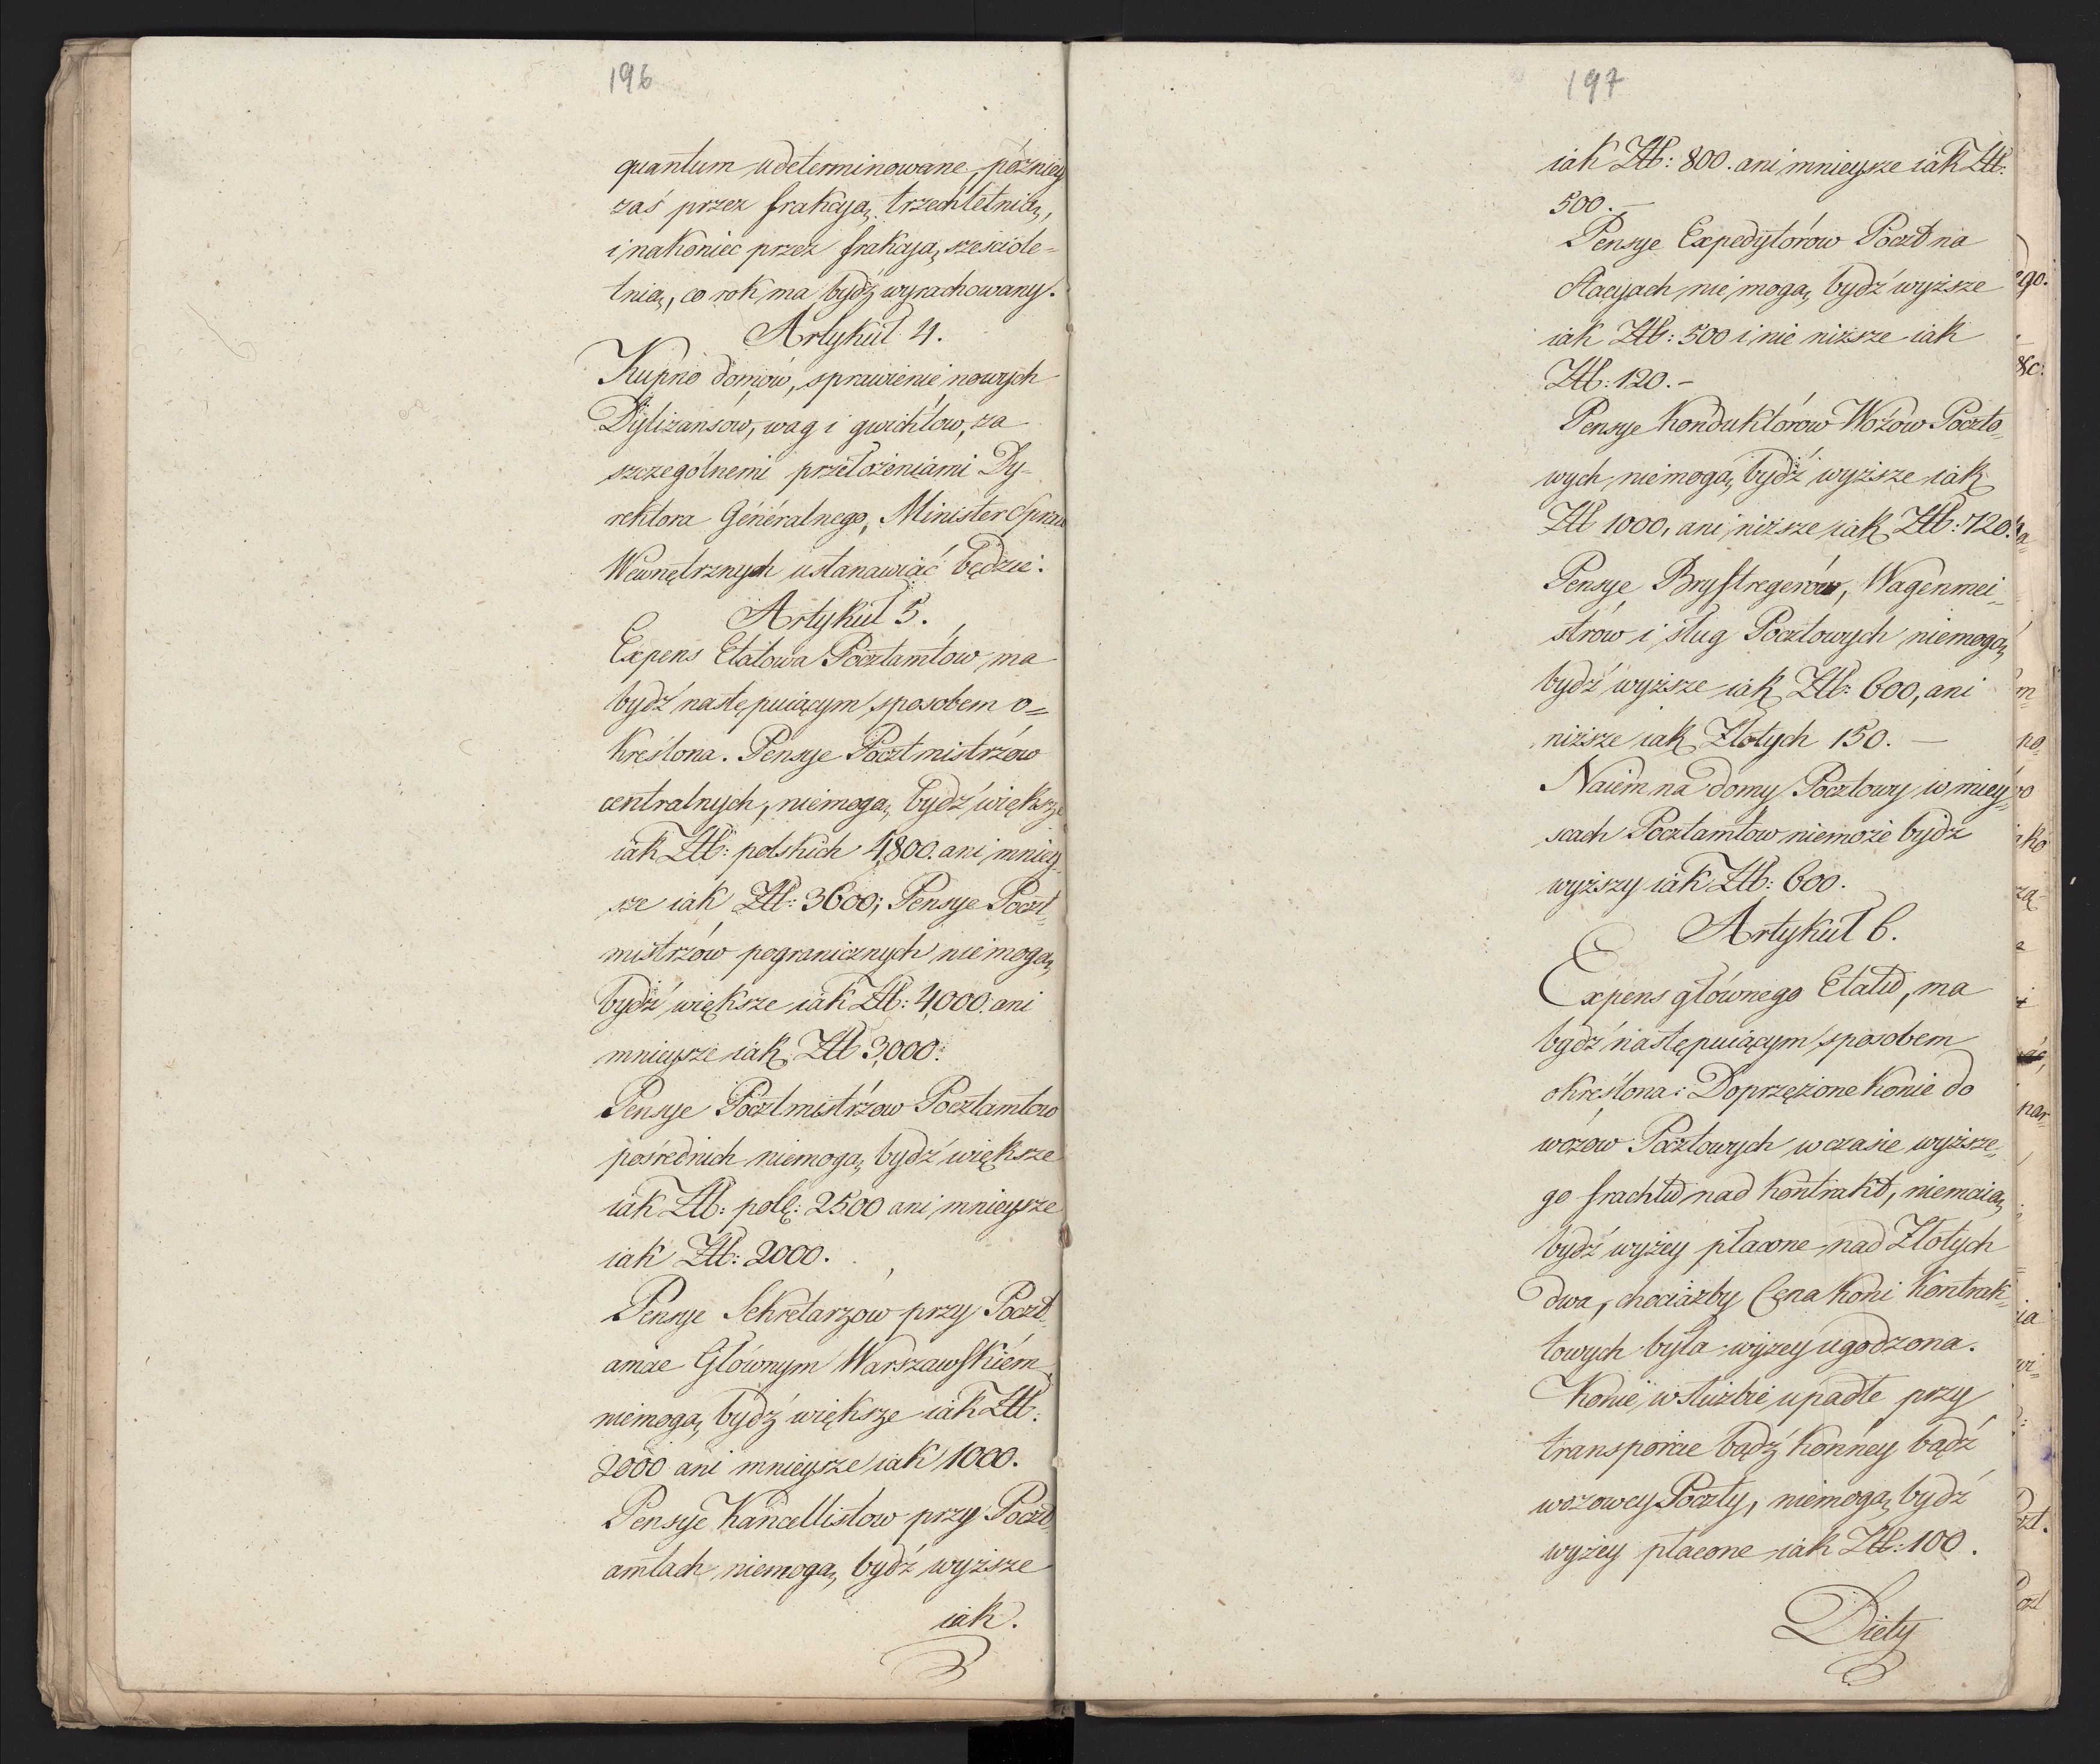 196
quantum udeterminowane, późniey
zaś przez frakcyą trzechletnią,
i nakoniec przez frakcyą sześciole-
tnią, co rok ma bydź wyrachowany.
Artykuł 4.
Kupno domów, sprawienie nowych
Dyliżansów, wag i gwichtów, za
szczególnemi przełożeniami Dy-
rektora Generalnego, Minister Spraw
Wewnętrznych ustanawiać będzie.
Artykuł 5.
Expens Etatowa Pocztamtów ma
bydź następuiącym sposobem o=
kreślona. Pensye Pocztmistrzów
centralnych, niemogą bydź większe
iak Złł: polskich 4,800. ani mniey-
sze iak Złł: 3600; Pensye Poczt-
mistrzów pogranicznych niemogą
bydź większe iak Złł: 4,000. ani
mnieysze iak Złł 3,000.
Pensye Pocztmistrzów Pocztamtów
pośrednich niemogą bydź większe
iak Złł: pols: 2500 ani mnieysze
iak Złł: 2000.
Pensye Sekretarzów przy Poczt-
amcie Głównym Warszawskiem
niemogą bydź większe iak Złł:
2000 ani mnieysze iak 1000.
Pensye Kancellistów przy Poczt-
amtach niemogą bydź wyższe
iak.
197
iak Złł: 800. ani mnieysze iak Złł:
500.—
Pensye Expedytorów Poczt na
Stacyach nie mogą bydź wyższe
iak Złł: 500 i nie niższe iak
Złł: 120.—
Pensye Konduktorów Wozów Poczto-
wych niemogą bydź wyższe iak
Złł 1000, ani niższe iak Złł: 720.
Pensye Bryftregerów, Wagenmei-
strów i sług Pocztowych niemogą
bydź wyższe iak Złł: 600, ani
niższe iak Złotych 150. —
Naiem na domy Pocztowy w miey-
scach Pocztamtów niemoże bydz
wyższy iak Złł: 600.
Artykuł 6.
Expens głównego Etatu, ma
bydź następuiącym sposobem
określona: Doprzężone konie do
wozów Pocztowych w czasie wyższe-
go frachtu nad kontrakt, niemaią
bydź wyżey płacone nad Złotych
dwa, chociażby Cena koni kontrak-
towych była wyżey ugodzona.
Konie w służbie upadłe przy
transporcie bądź konney bądź
wozowey Poczty, niemogą bydź
wyżey płacone iak Złł: 100.
Diety